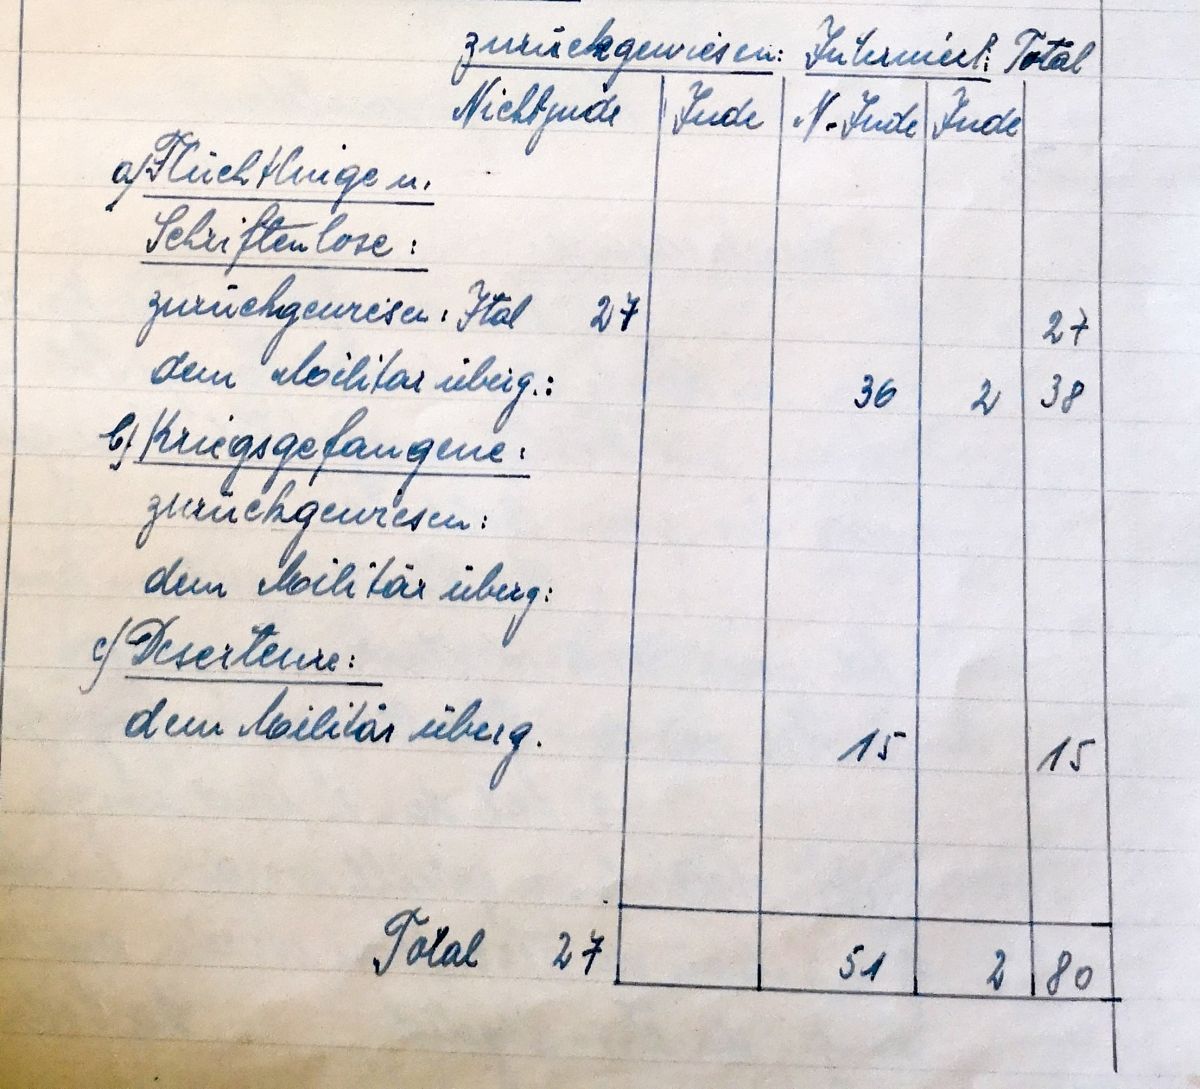 zurückgewiesen: Interniert: Total
Nichtjude Jude N.-Jude Jude
a) Flüchtlinge u.
Schriftenlose:
zurückgewiesen: Ital 27 27
dem Militär überg.: 36 2 38
b) Kriegsgefangene:
zurückgewiesen:
dem Militär überg:
c) Deserteure:
dem Militär überg. 15 15
Total 27 51 2 80